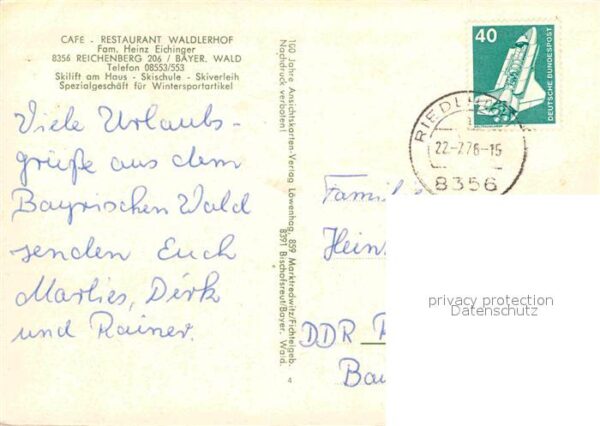 CAFE - RESTAURANT WALDLERHOF
Fam. Heinz Eichinger
8356 REICHENBERG 206 / BAYER. WALD
Telefon 08553/553
Skilift am Haus - Skischule - Skiverleih
Spezialgeschäft für Wintersportartikel
Viele Urlaubs-
grüße aus dem
Bayrischen Wald
senden Euch
Marlies, Dirk
und Rainer.
100 Jahre Ansichtskarten-Verlag Löwenhag, 859 Marktredwitz/Fichtelgeb.
Nachdruck verboten! 8391 Bischofsreut/Bayer. Wald.
4
40
DEUTSCHE BUNDESPOST
22.-7.76-15
8356
Famil
Hein
DDR
Bau
privacy protection
Datenschutz